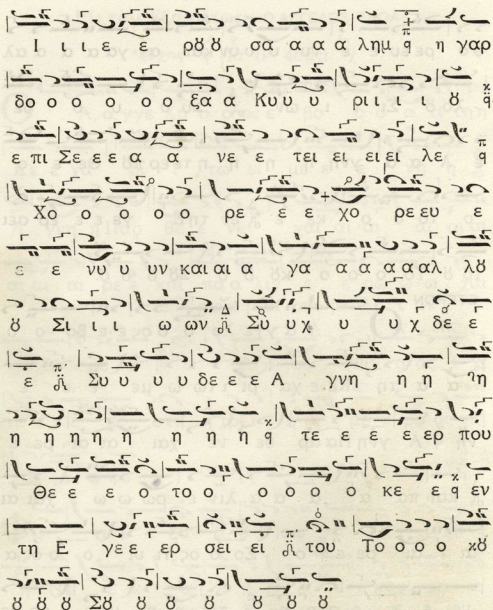 Ι ι ι ε ε ρȣ ȣ σα α α α λημ η γαρ
δο ο ο ο ο ο ξα α Κυ υ υ ρι ι ι ι ȣ
ε πι Σε ε ε α α νε ε τει ει ειει λε
Χο ο ο ο ρε ε ε χο ρε ευ ε
ε ε νυ υ υν και αι α γα α α α α αλ λȣ
ȣ Σι ι ι ω ων Συ υ χ υ υ χ δε ε
ε Συ υ υ υ δε ε ε Α γνη η η η
η η η η η η η η τε ε ε ε ερ που
Θε ε ε ο το ο ο ο ο ο κε ε εν
τη Ε γε ε ερ σει ει του Το ο ο ο κȣ
ȣ ȣ ȣ Σȣ ȣ ȣ ȣ ȣ ȣ